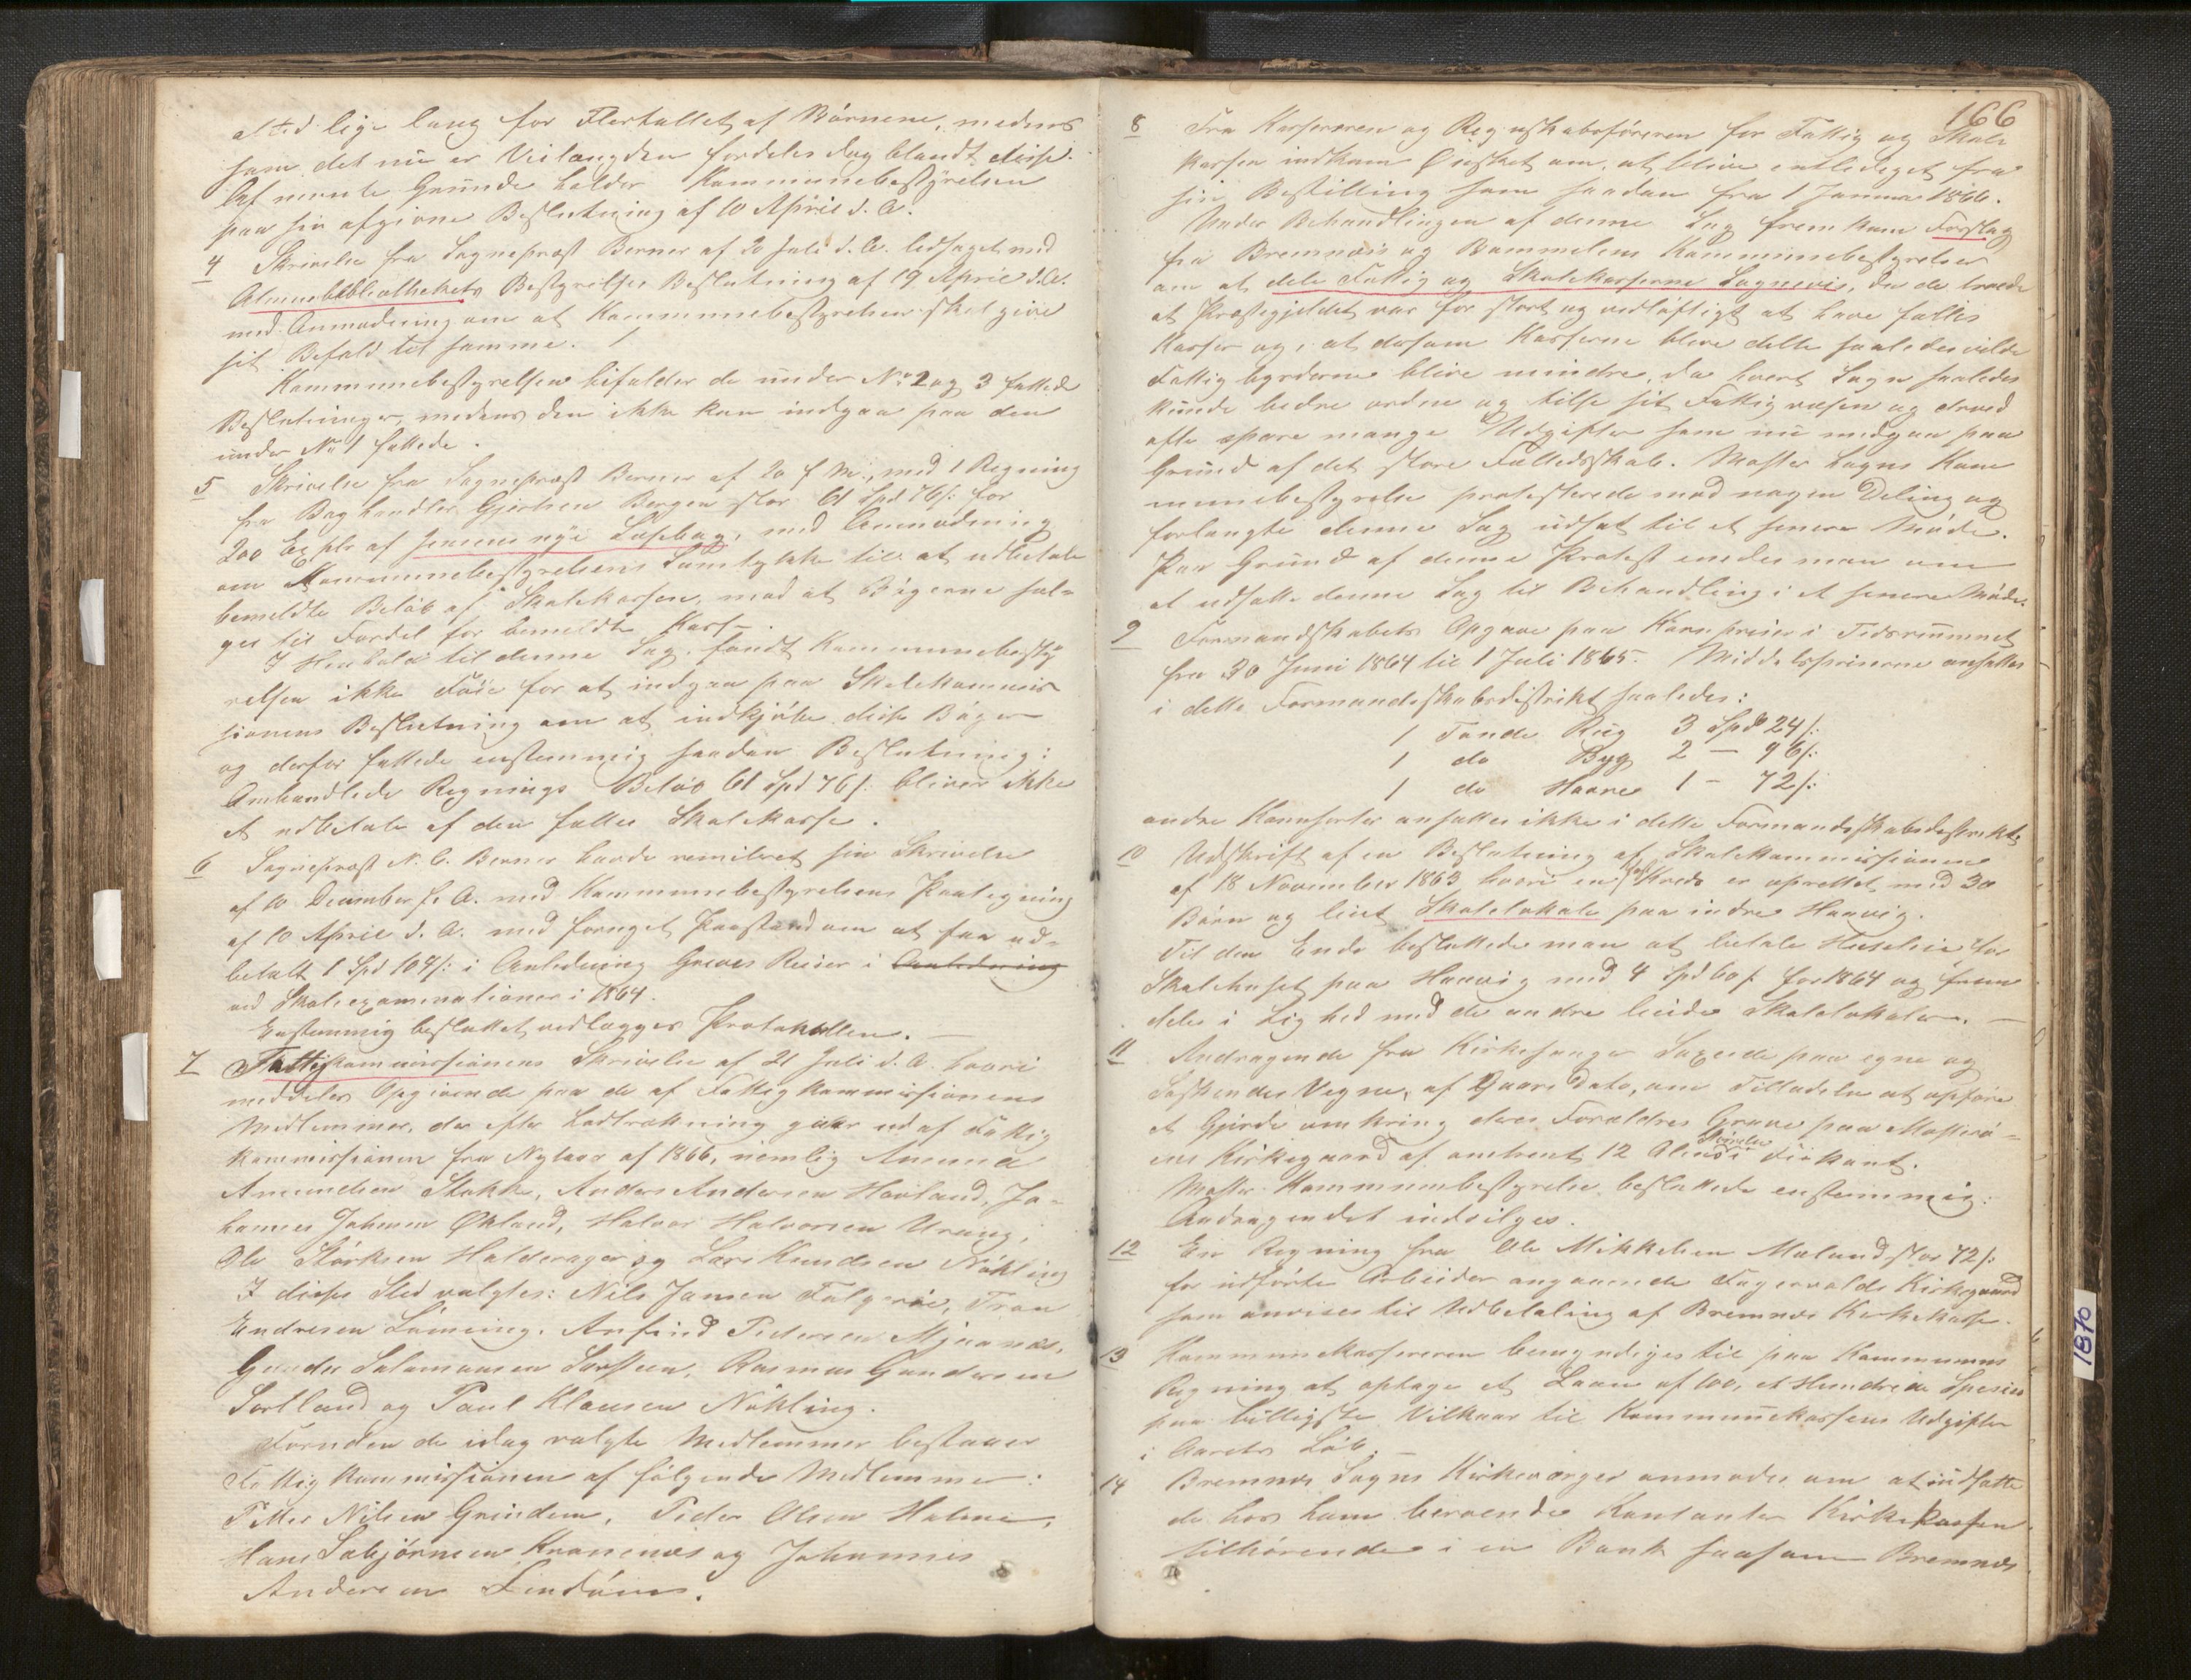 altid lige lang for Flertallet af Börnene, medens
som det nu er Veilængden fordeles dog blandt disse.
Af nævnte Grunde holder Kommunebestyrelsen
paa sin afgivne Beslutning af 10 April d. A.
4 Skrivelse fra Sognepræst Berner af 20 Juli d. A. ledsaget med
Almuebibliothekets Bestyrelses Beslutning af 19 April d. A.
med Anmodning om at Kommunebestyrelsen skal give
sit Bifald til samme.
Kommunebestyrelsen bifalder de under No 2 og 3 fattede
Beslutninger, medens den ikke kan indgaa paa den
under No 1 fattede.
5 Skrivelse fra Sognepræst Berner af 20 f. M., med 1 Regning
fra Boghandler Gjertsen Bergen stor 61 Spd 76 /: for
200 Explr af Jensens nye Læsebog, med Anmodning
om Kommunebestyrelsens Samtykke til at udbetale
bemeldte Belöb af Skolekassen, mod at Bögerne sæl-
ges til Fordel for bemeldte Kasse.
I Henhold til denne Sag, fandt Kommunebesty
relsen ikke Föie for at indgaa paa Skolekommis
sionens Beslutning om at indkjöbe disse Böger
og derfor fattede enstemmig saadan Beslutning:
Omhandlede Regnings Belöb 61 Spd 76 /: bliver ikke
at udbetale af den fælles Skolekasse.
6 Sognepræst N. C. Berner havde remiteret sin Skrivelse
af 10 December f. A. med Kommunebestyrelsens Paategning
af 10 April d. A. med fornyet Paastand om at faa ud-
betalt 1 Spd 104 /: i Anledning Greves Reiser i Anledning
ved Skoleexaminationer i 1864.
Enstemmig besluttet vedlægges Protokollen. —
7 Fattigkommissionens Skrivelse af 21 Juli d. A. hvori
meddeles Opgivende paa de af Fattigkommissionens
Medlemmer, der efter Lodtrækning gaar ud af Fattig
kommissionen fra Nytaar af 1866, nemlig Amund
Amundsen Stokke, Anders Andersen Hovland, Jo-
hannes Johnsen Økland, Halvor Halvorsen Urang,
Ole Störksen Halderager og Lars Knudsen Nökling
I disses Sted valgtes: Nils Jansen Folgeröe, Tron
Endresen Lönning, Anfind Pedersen Mjaanes,
Gunder Salamonsen Sørsteen, Rasmus Gundersen
Sortland og Paul Klausen Nökling.
Foruden de idag valgte Medlemmer bestaaer
Fattigkommissionen af fölgende Medlemmer:
Peder Nilsen Grindem, Peder Olsen Holme,
Hans Sabjörnsen Kranenæs og Johannes
Andersen Lindöen.
166
8 Fra Kassereren og Regnskabsföreren for Fattig og Skole
kassen indkom Ønsket om at blive entlediget fra
sin Bestilling som saadan fra 1 Januar 1866.
Under Behandlingen af denne Sag fremkom Forslag
fra Bremnæs og Bømmelens Kommunebestyrelser
om at dele Fattig og Skolekasserne Sognevis, da de troede
at Præstegjeldet var for stort og vidlöftigt at have fælles
Kasser og, at dersom Kasserne bleve delte saaledes vilde
Fattigbyrderne blive mindre, da hvert Sogn saaledes
kunde bedre ordne og tilse sit Fattigvæsen og derved
ofte spare mange Udgifter som nu medgaa paa
Grund af det store Fælledsskab. Moster Sogns Kom
munebestyrelse protesterede mod nogen Deling og
forlangte denne Sag udsat til et senere Möde.
Paa Grund af denne Protest enedes man om
at udsætte denne Sag til Behandling i et senere Möde.
9 Formandskabets Opgave paa Kornpriser i Tidsrummet
fra 30 Juni 1864 til 1 Juli 1865. Middelspriserne ansættes
i dette Formandsskabsdistrikt saaledes:
1 Tönde Rug 3 Spd 24 /:
1 do Byg 2 — 96 /:
1 do Havre 1 — 72 /:
andre Kornsorter ansættes ikke i dette Formandsskabsdistrikt.
10 Udskrift af en Beslutning af Skolekommissionen
af 18 November 1863 hvori en fast Kreds er oprettet med 30
Börn og leiet Skolelokale paa indre Haavig.
Til den Ende besluttede man at betale Husleie for
Skolehuset paa Haavig med 4 Spd 60 /: for 1864 og frem
deles i Lighed med de andre leiede Skolelokaler. —
11 Andragende fra Kirkesanger Søreide paa egne og
Söskendes Vegne, af Gaars Dato, om Tilladelse at opföre
et Gjerde omkring deres Forældres Grave paa Mosterö-
ens Kirkegaard af omtrent 12 Alens Störrelse i Firkant.
Moster Kommunebestyrelse besluttede enstemmig:
Andragendet indvilges.
12 En Regning fra Ole Mikkelsen Meland stor 72 /:
for udförte Arbeider angaaende Fagervolds Kirkegaard
som anvises til Udbetaling af Bremnæs Kirkekasse.
13 Kommunekassereren bemyndiges til paa Kommunens
Regning at optage et Laan af 100, et Hundrede Species
paa billigste Vilkaar til Kommunekassens Udgifter
i Aarets Löb. —
14 Bremnæs Sogns Kirkeværger anmodes om at indsætte
de hos ham beroende Kontanter Kirkekassen
tilhörende i en Bank saasom Bremnæs
1870